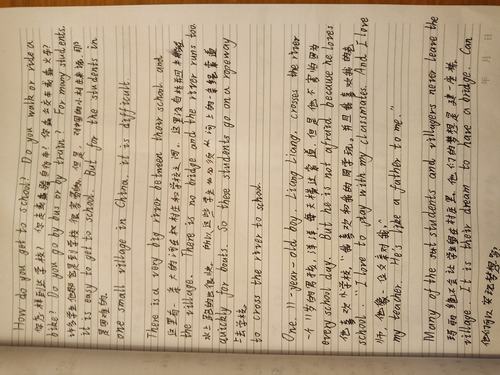 How do you get to school? Do you walk or ride a
你怎样到达学校?你走着或骑自行车?你坐公交车或坐火车?
bike? Do you go by bus or by train? For many students,
许多学生他们容易到学校很容易的,但是,对中国的小村庄来说,那
it is easy to get to school. But for the students in
是困难的.
one small village in China, it is difficult.
There is a very big river between their school and
这里有一条大的河在村庄和学校之间.这里没有桥并且
the village. There is no bridge and the river runs too
水上跑的也很快,所以这些学生他必须从河上的索道
quickly for boats. So these students go on a ropeway
上去学校
to cross the river to school.
One 11-year-old boy Liang Liang, crosses the river
一个11岁的男孩,亮亮每天横过索道,但是他不害怕因为
every school day. But he is not afraid because he loves
他喜欢学校."我喜欢和我的同学玩,并且我喜欢我的老
school. "I love to play with my classmates. And I love
师,他像一位父亲对我."
my teacher. He's like a father to me."
Many of the students and villagers never leave the
village. It is their dream to have a bridge. Can